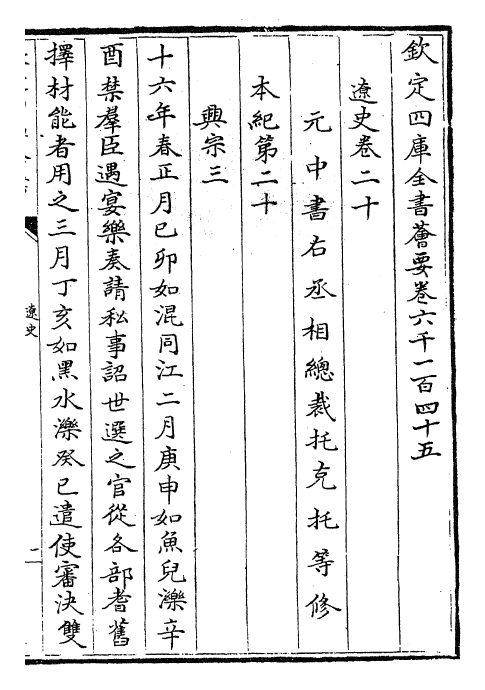 欽定四庫全書薈要卷六千一百四十五
遼史卷二十
元中書右丞相總裁托克托等修
本紀第二十
興宗三
十六年春正月己卯如混同江二月庚申如魚兒濼辛
酉禁羣臣遇宴樂奏請私事詔世選之官從各部耆舊
擇材能者用之三月丁亥如黑水濼癸巳遣使審決雙
遼史